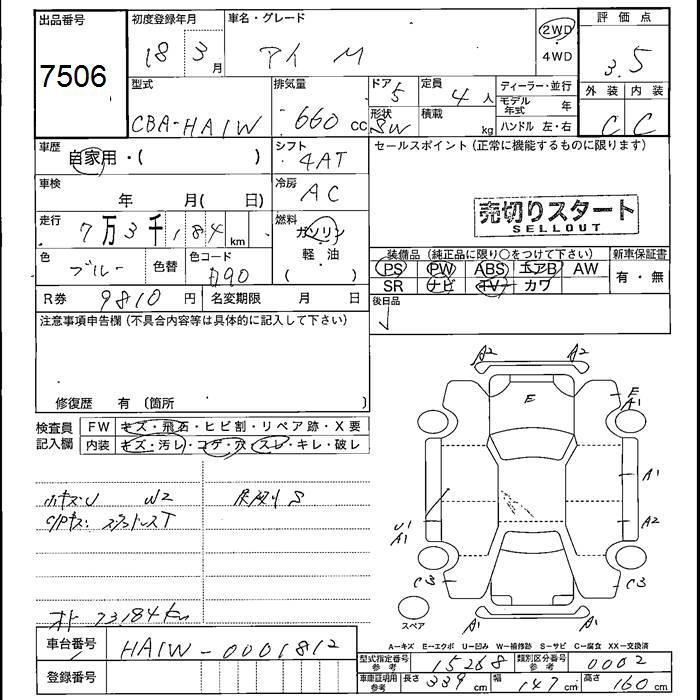 出品番号
7506
初度登録年月
18 3月
車名・グレード
アイ M
2WD
・
4WD
評価点
3.5
型式
CBA-HA1W
排気量
660 cc
ドア
5
形状
SW
定員
4人
積載
kg
ディーラー・並行
モデル年式 年
ハンドル 左・右
外装 内装
C C
車歴
自家用・( )
シフト
4AT
セールスポイント(正常に機能するものに限ります)
車検
年 月( 日)
冷房
AC
売切りスタート
SELLOUT
走行
7万3千184 km
燃料
ガソリン
軽・油
( )
色
ブルー
色替
色コード
装備品(純正品に限り○をつけて下さい)
新車保証書
PS PW ABS エアB AW
有・無
SR ナビ TV カワ
R券 9810円
名変期限 月 日
後日品
注意事項申告欄(不具合内容等は具体的に記入して下さい)
修復歴 有(箇所
検査員記入欄
FW キズ・飛石・ヒビ割・リペア跡・X要
内装 キズ・汚レ・コゲ・穴・スレ・キレ・破レ
W2
73184km
A2 A2
E
E
A1
A1
A2
U1
A1
C3 C3
A1 A1
スペア
車台番号
HA1W-0001812
登録番号
A-キズ E-エクボ U-凹み W-補修跡 S-サビ C-腐食 XX-交換済
型式指定番号
参考
15268
類別区分番号
参考
0002
車庫証明用
参考
長さ 339 cm
幅 147 cm
高さ 160 cm